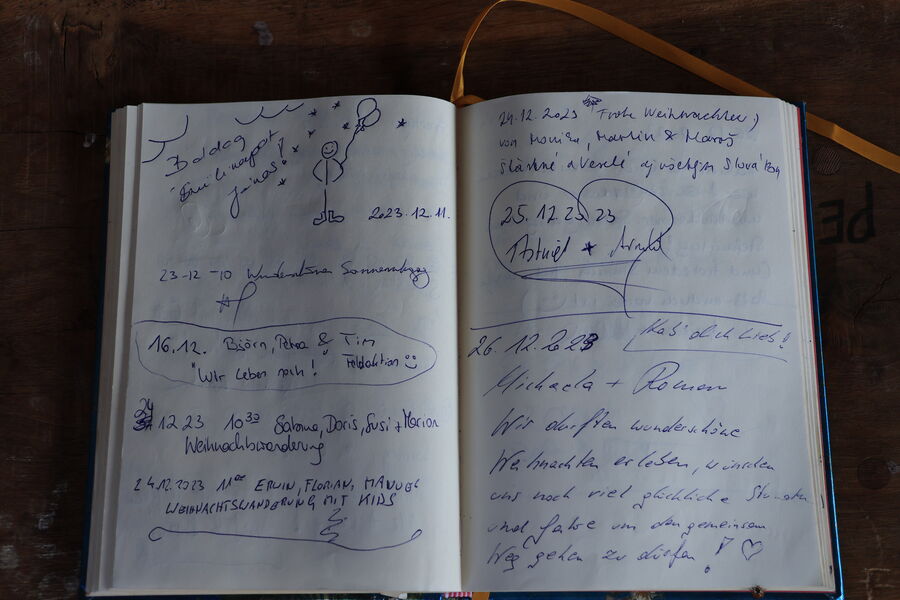 Boldog
2023.12.11.
23-12-10 Wunderschöner Sonnenuntergang
16.12. Björn, Petra & Tim
"Wir leben noch!"
24 12 23 10³⁰ Salome, Doris, Susi + Marion
Weihnachtswanderung
24.12.2023 11⁰⁰ ERWIN, FLORIAN, MANUEL
WEIHNACHTSWANDERUNG MIT KIDS
24.12.2023 Frohe Weihnachten ;)
von Monika, Martin & Maroš
Šťastné a Veselé aj všetkým Slovákom
25.12.23 23
26.12.2023 Hab' dich lieb!
Michaela + Roman
Wir durften wunderschöne
Weihnachten erleben, wünschen
uns noch viel glückliche Stunden
und Jahre um den gemeinsam
Weg gehen zu dürfen!